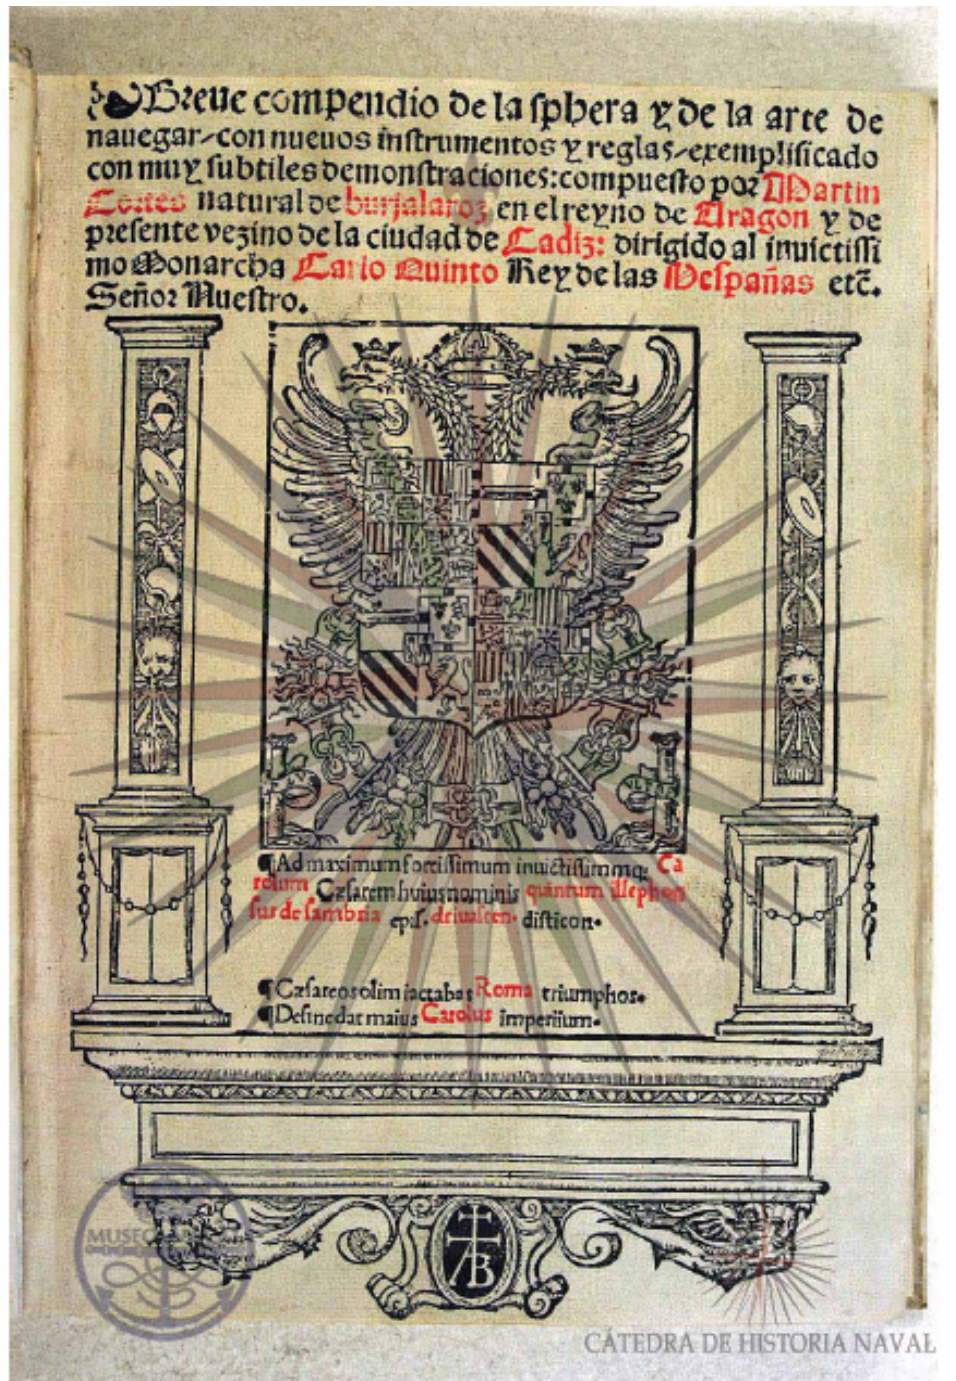 Breue compendio de la sphera y de la arte de
nauegar, con nueuos instrumentos y reglas, exemplificado
con muy subtiles demonstraciones: compuesto por Martin
Cortes natural de burjalaroz en el reyno de Aragon y de
presente vezino de la ciudad de Cadiz: dirigido al inuictissi
mo Monarcha Carlo Quinto Rey de las Hespañas etc̃.
Señor Nuestro.
¶Ad maximum fortissimum inuictissimumq; Ca
rolum Cæsarem huius nominis quintum illephon
sus de sambria ep.s. distticon.
¶Cæsareos olim iactabas Roma triumphos.
¶Desine dat maius Carolus imperiium.
B
MUSEO
CÁTEDRA DE HISTORIA NAVAL